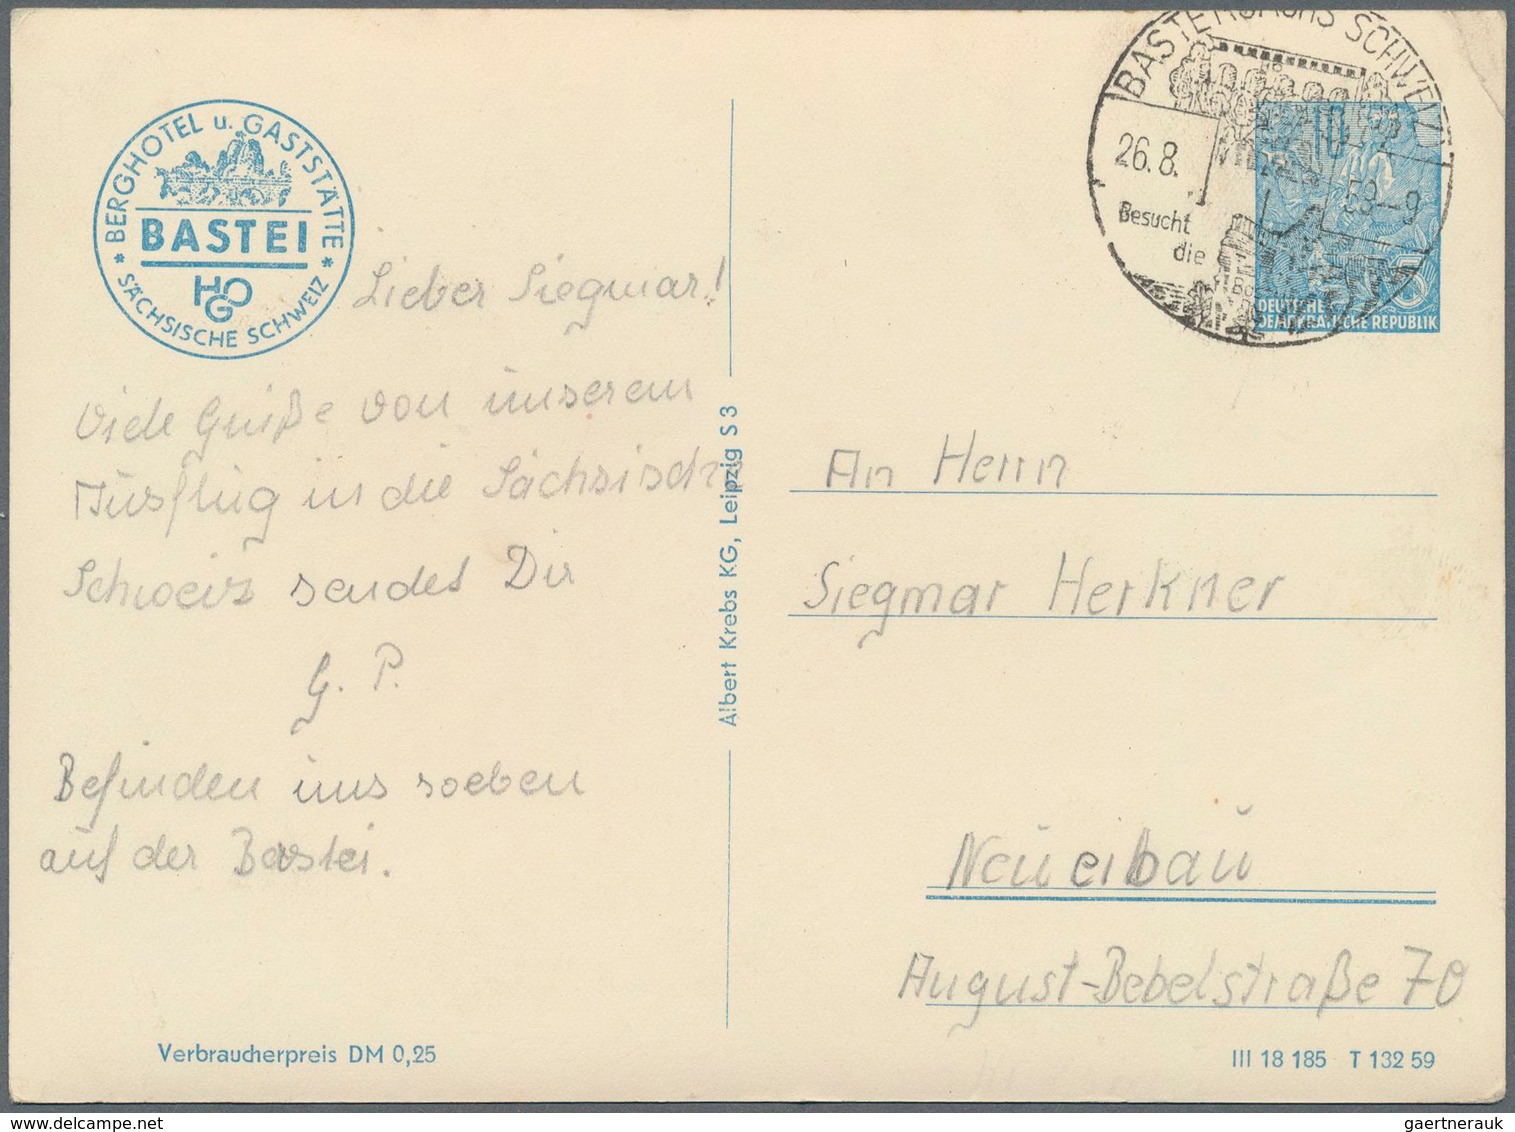 BERGHOTEL u. GASTSTÄTTE
BASTEI
HOG
* SÄCHSISCHE SCHWEIZ *
Lieber Siegmar!
Viele Grüße von unserem
Ausflug in die Sächsische
Schweiz sendet Dir
G. P.
Befinden uns soeben
auf der Bastei.
Verbraucherpreis DM 0,25
Albert Krebs KG, Leipzig S 3
SCHWEIZ
26.8.
58--9
Besucht
die
10
5
DEUTSCHE
DEMOKRATISCHE REPUBLIK
An Herrn
Siegmar Herkner
Neueibau
August-Bebelstraße 70
III 18 185 T 132 59
gaertnerauk